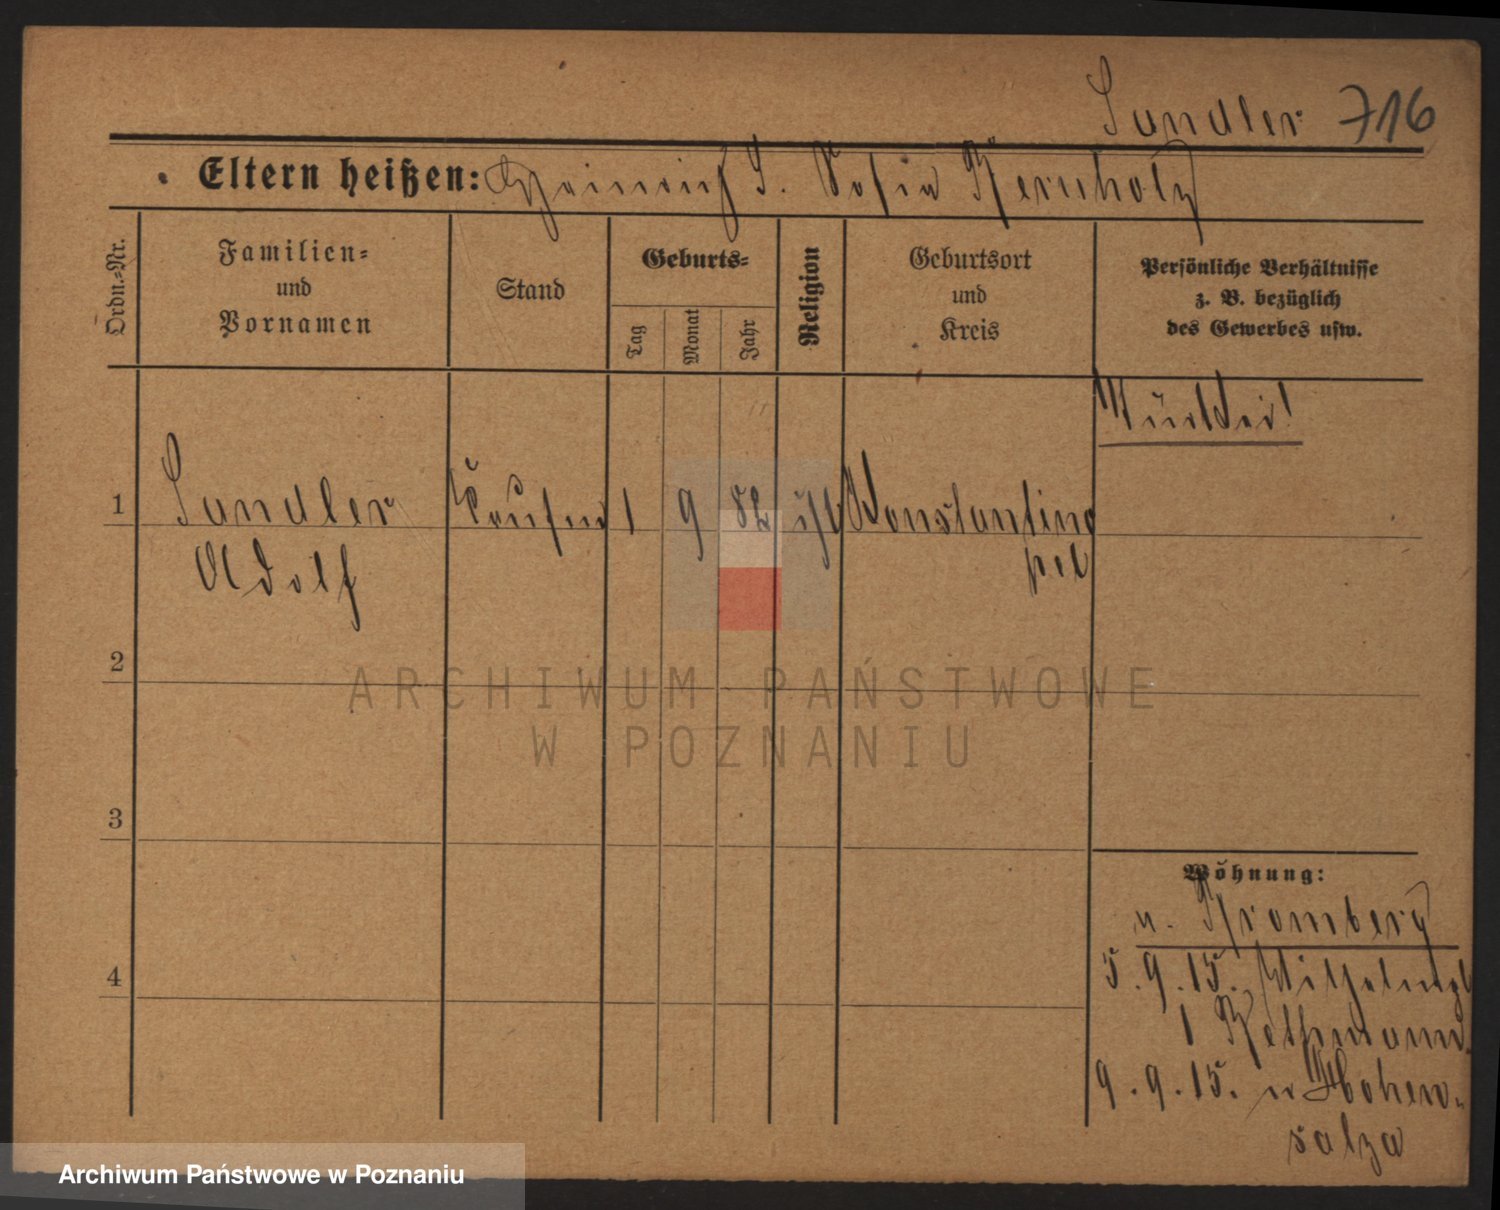 Sandler 716
Eltern heißen: Heinrich S. Sofia Kernholz
Ordn.-Nr.
Familien-
und
Vornamen
Stand
Geburts-
Tag
Monat
Jahr
Religion
Geburtsort
und
Kreis
Persönliche Verhältnisse
z. B. bezüglich
des Gewerbes usw.
1 Sandler 1 9 82 Konstantino
pel
Adolf
2
3
4
Wohnung:
Bromberg
5.9.15. Wilhelmpl
1
9.9.15. n Hohen-
salza
ARCHIWUM PAŃSTWOWE
W POZNANIU
Archiwum Państwowe w Poznaniu